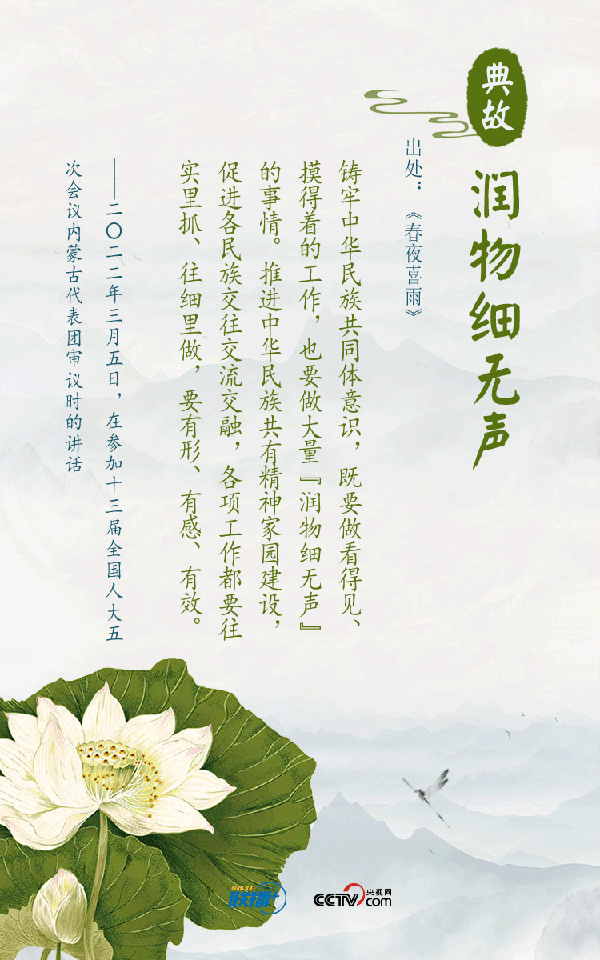 典故
润物细无声
出处：《春夜喜雨》
铸牢中华民族共同体意识，既要做看得见、
摸得着的工作，也要做大量『润物细无声』
的事情。推进中华民族共有精神家园建设，
促进各民族交往交流交融，各项工作都要往
实里抓、往细里做，要有形、有感、有效。
——二〇二二年三月五日，在参加十三届全国人大五
次会议内蒙古代表团审议时的讲话
联播+
CCTV.com
央视网